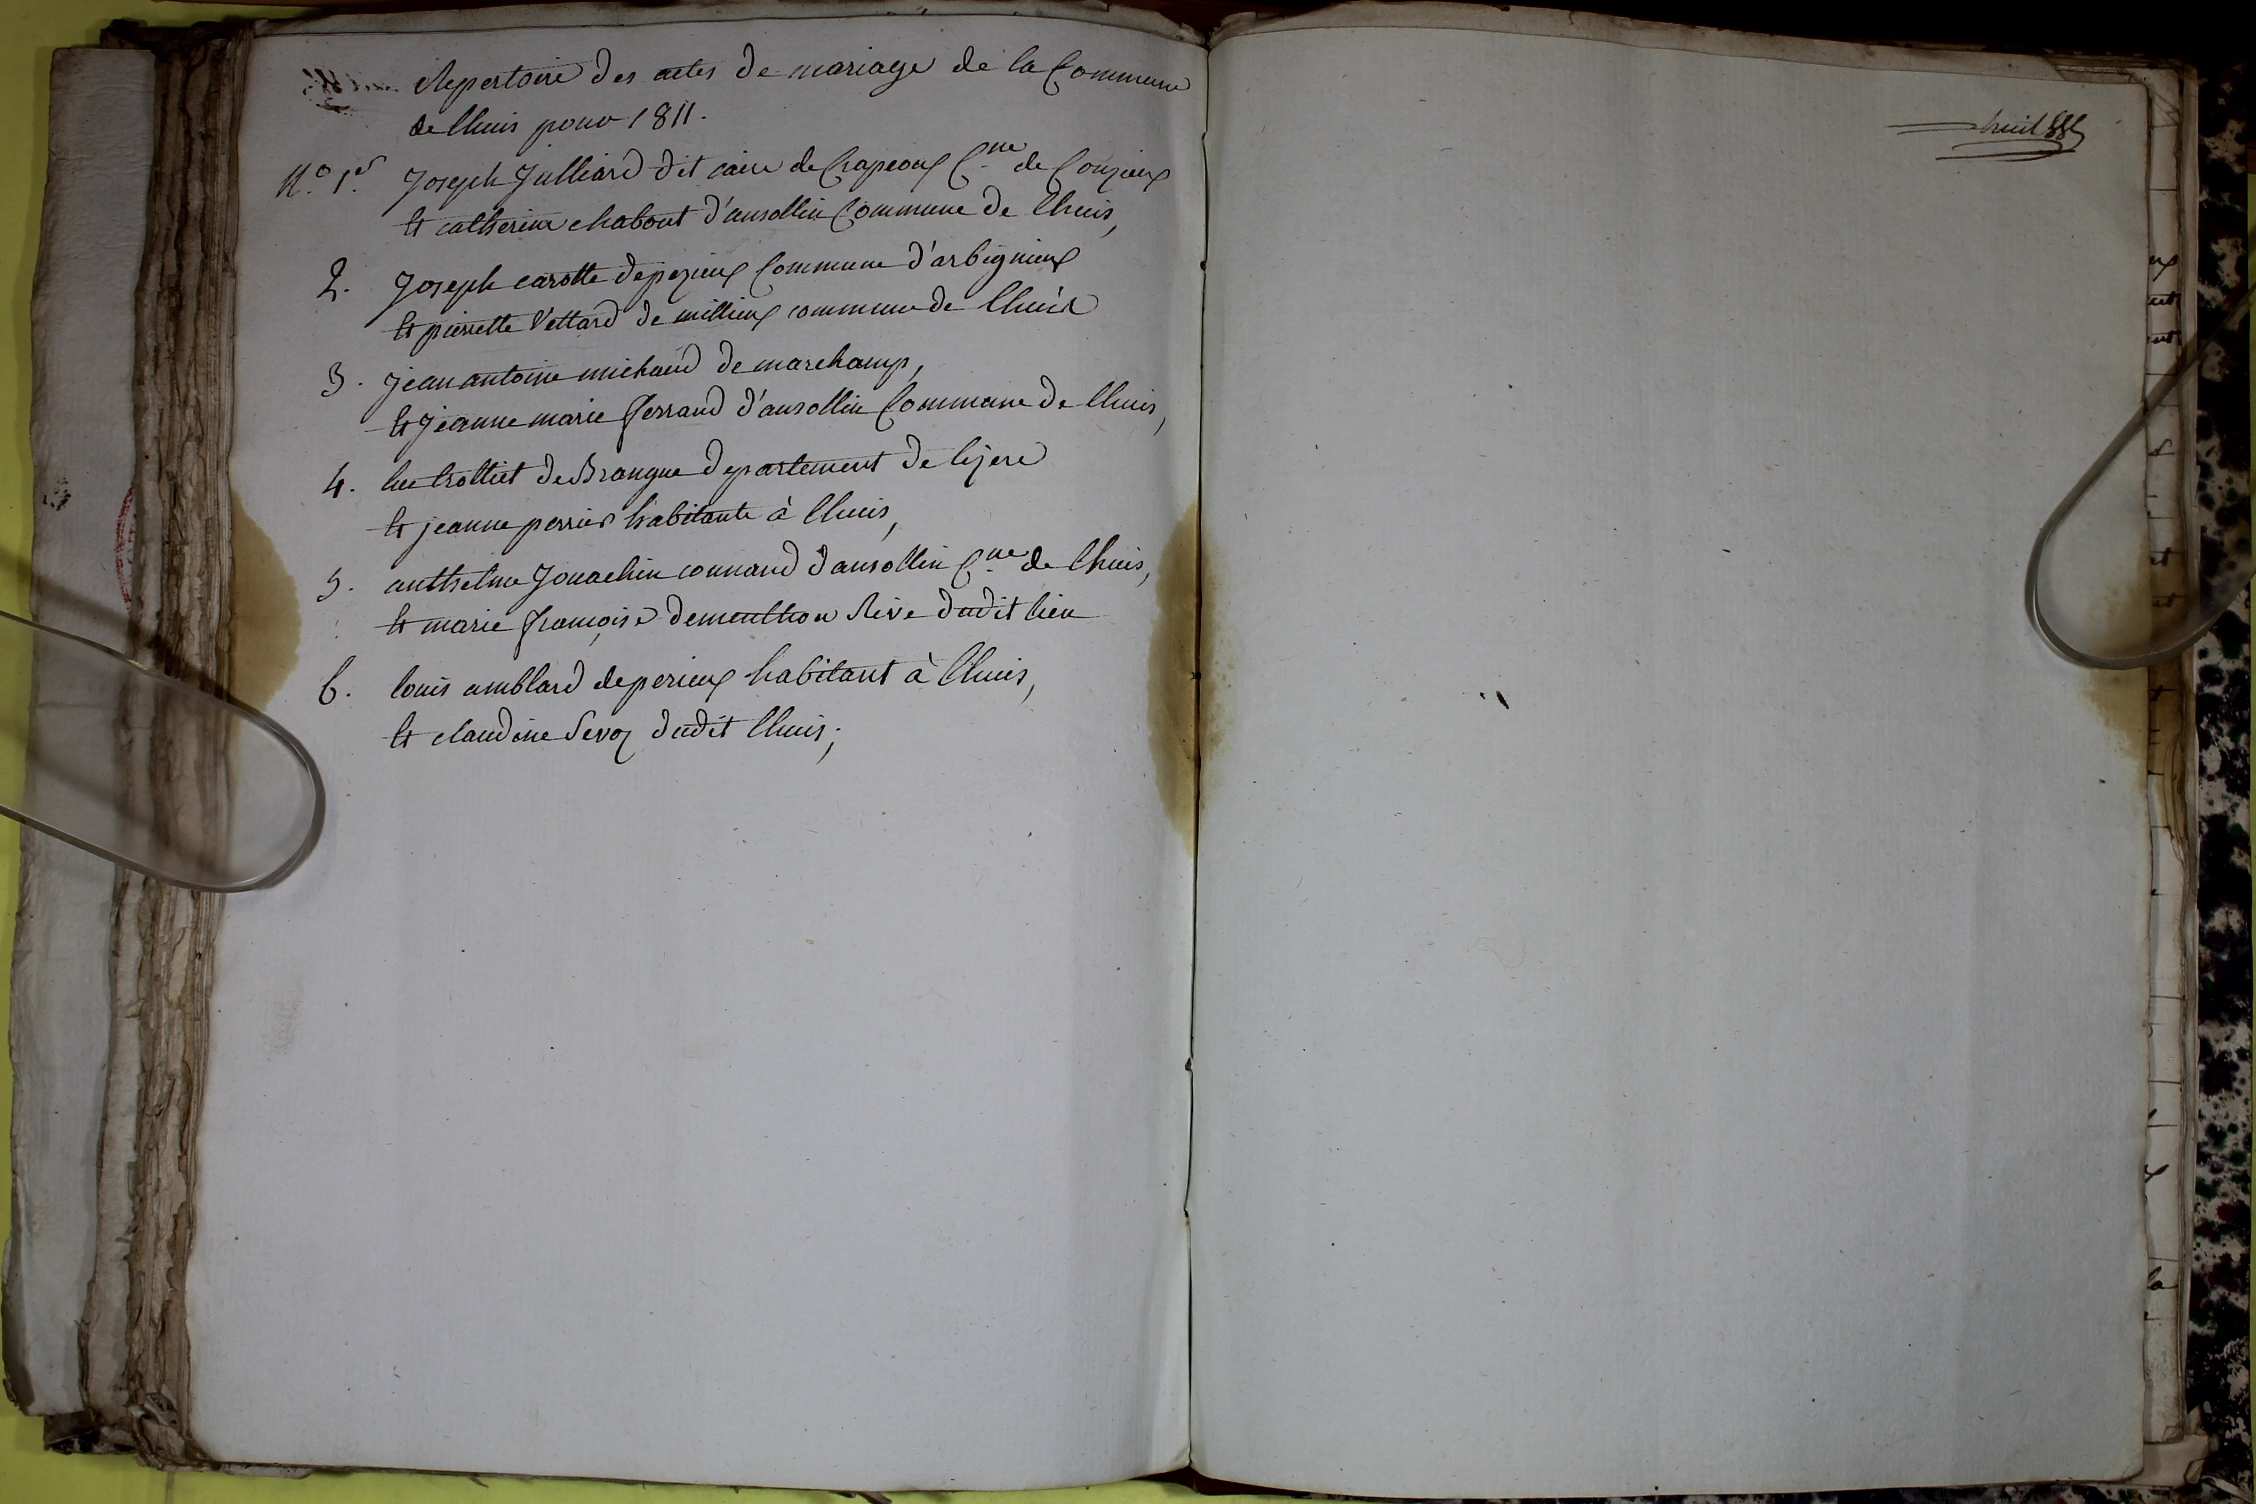 Repertoire des actes de mariage de la Commune
de lhuis pour 1811.
N.o 1.er Joseph Julliard dit caire de Crapeoux C.ne de Conzieux
et catherine chabout d'ansollin Commune de lhuis,
2. Joseph carotte depezieux Commune d'arbignieux
et pierrette Vettard de millieux commune de lhuis
3. jean antoine michaud de marchamp,
et jeanne marie ferrand d'ansollin Commune de lhuis,
4. luc trolliet de Brangue departement de lizere
et jeanne perrier habitante à lhuis,
5. anthelme Jouachin connand d'ansollin C.ne de lhuis,
et marie françoise dementhon Rive dudit lieu
6. louis amblard deperieux habitant à lhuis,
et claudine Sevoz dudit lhuis;
huit